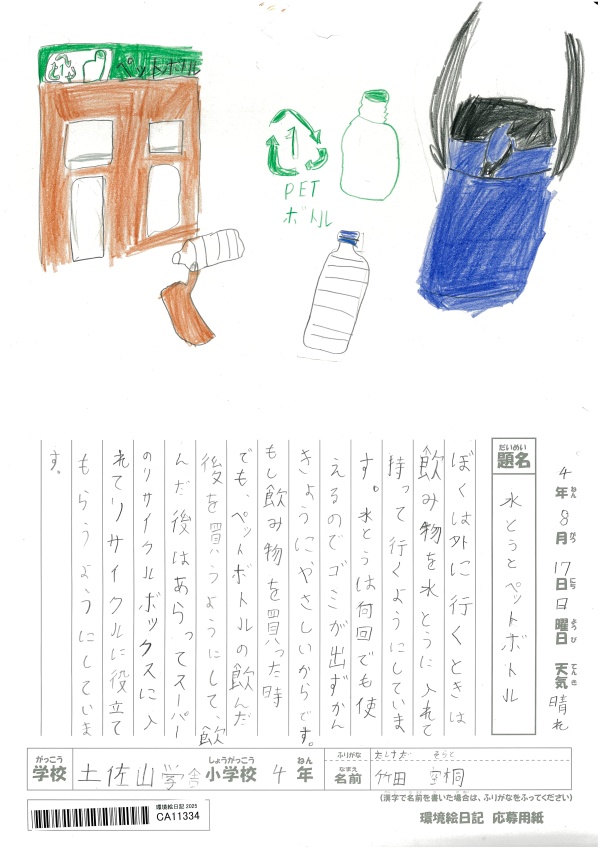 1
ペットボトル
1
PET
ボトル
4年ねん 8月がつ 17日にち 日曜日ようび 天気てんき 晴れ
題名だいめい 水とうとペットボトル
ぼくは外に行くときは
飲み物を水とうに入れて
持って行くようにしていま
す。水とうは何回でも使
えるのでゴミが出ずかん
きょうにやさしいからです。
もし飲み物を買った時
でも、ペットボトルの飲んだ
後を買うようにして、飲
んだ後はあらってスーパー
のリサイクルボックスに入
れてリサイクルに役立て
もらうようにしていま
す。
学校がっこう 土佐山学舎 小学校しょうがっこう 4年ねん
ふりがな たけだ そらと
名前なまえ 竹田 空桐
(漢字で名前を書いた場合は、ふりがなをふってください)
環境絵日記2025
CA11334
環境絵日記 応募用紙